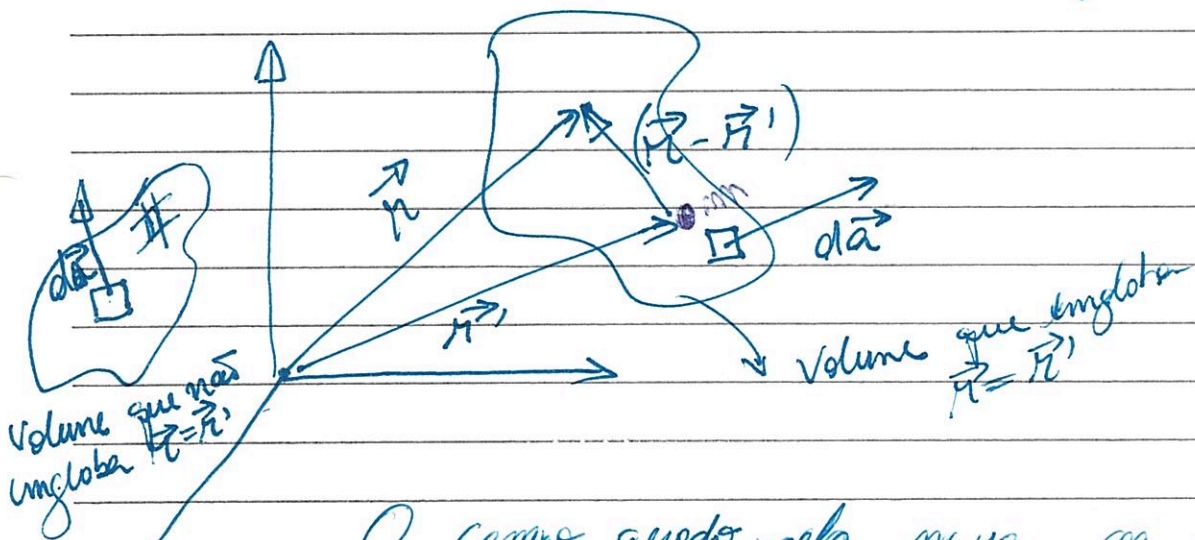 (r⃗ - r⃗')
r⃗
m
da⃗
da⃗
r⃗'
Volume que engloba
r⃗ = r⃗'
Volume que não
engloba r⃗ = r⃗'
O campo gerado pela massa m